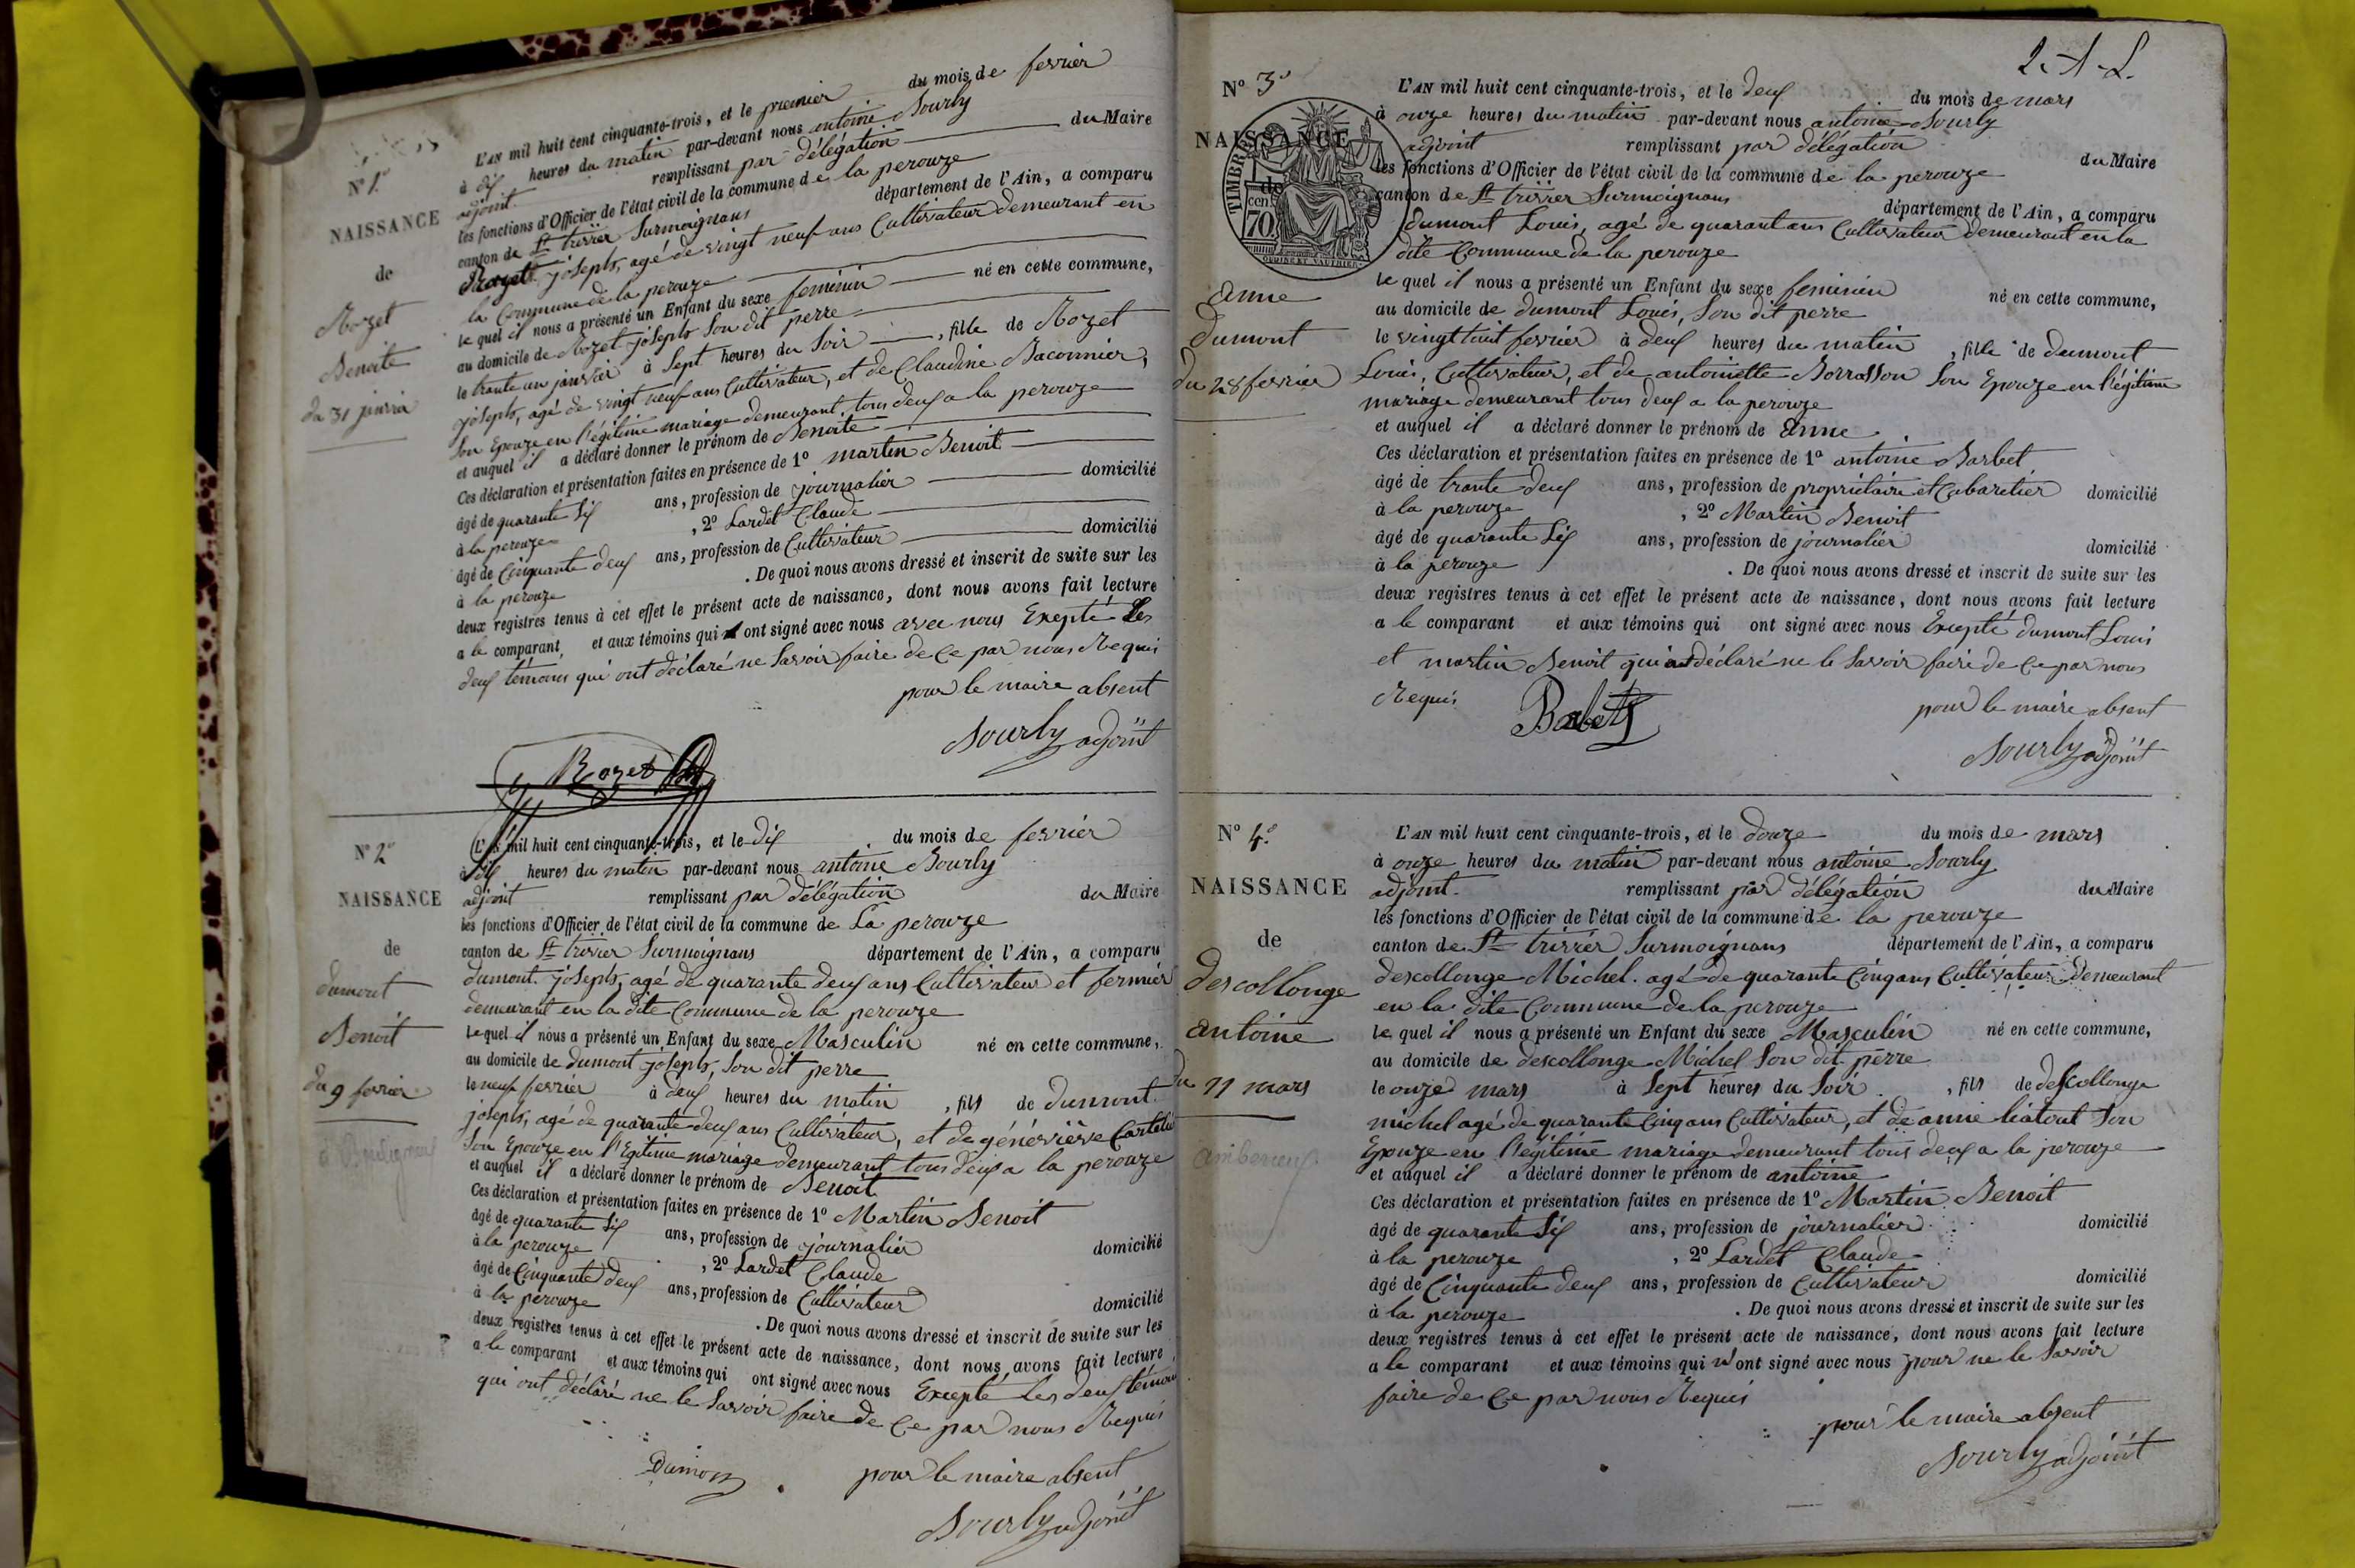 N° 1.°
NAISSANCE
de
Rozet
Benoite
du 31 janvier
L'AN mil huit cent cinquante-trois, et le premier du mois de fevrier
à dix heures du matin par-devant nous antoine Sourly
adjoint. remplissant par délégation du Maire
les fonctions d'Officier de l'état civil de la commune de la perouze
canton de St trivier Surmoignans département de l'Ain, a comparu
Rozet joseph, agé de vingt neuf ans Cultivateur demeurant en
la Commune de la perouze
le quel il nous a présenté un Enfant du sexe feminin né en cette commune,
au domicile de Rozet joseph son dit perre
le trante un janvier à Sept heures du Soir, fille de Rozet
joseph, agé de vingt neuf ans Cultivateur, et de Claudine Baconnier,
Son Epouze en l'égitime mariage demeurant tous deux a la perouze
et auquel il a déclaré donner le prénom de Benoite
Ces déclaration et présentation faites en présence de 1° martin Benoit
âgé de quarante Six ans, profession de journalier domicilié
à la perouze, 2° Lardet Claude
âgé de Cinquante deux ans, profession de Cultivateur domicilié
à la perouze. De quoi nous avons dressé et inscrit de suite sur les
deux registres tenus à cet effet le présent acte de naissance, dont nous avons fait lecture
a le comparant, et aux témoins qui ont signé avec nous avec nous Exepté Les
deux témoins qui ont déclaré ne Savoir faire de Ce par nous Requi
pour le maire absent
Sourly adjoint
Rozet
N° 2°
NAISSANCE
de
dumont
Benoit
du 9 fevrier
L'AN mil huit cent cinquante-trois, et le dix du mois de fevrier
à dix heures du matin par-devant nous antoine Sourly
adjoint remplissant par délégation du Maire
les fonctions d'Officier de l'état civil de la commune de La perouze
canton de St trivier Surmoignans département de l'Ain, a comparu
dumont joseph, agé de quarante deux ans Cultivateur et fermier
demeurant en la dite Commune de la perouze
le quel il nous a présenté un Enfant du sexe Masculin né en cette commune,
au domicile de dumont joseph, Son dit perre
le neuf fevrier à deux heures du matin, fils de dumont
joseph, agé de quarante deux ans Cultivateur, et de géneviève
Son Epouze en l'Egitime mariage demeurant tous deux a la perouze
et auquel il a déclaré donner le prénom de Benoit
Ces déclaration et présentation faites en présence de 1° Martin Benoit
âgé de quarante Six ans, profession de journalier domicilié
à la perouze, 2° Lardet Claude
âgé de Cinquante deux ans, profession de Cultivateur domicilié
à la perouze. De quoi nous avons dressé et inscrit de suite sur les
deux registres tenus à cet effet le présent acte de naissance, dont nous avons fait lecture
a le comparant et aux témoins qui ont signé avec nous Excepté Les deux témoin
qui ont déclaré ne le Savoir faire de Ce par nous Requis
Dumon pour le maire absent
Sourly adjoint
N° 3°
NAISSANCE
de
TIMBRE
cen. 70
anne
dumont
du 28 fevrier
L'AN mil huit cent cinquante-trois, et le deux du mois de mars
à onze heures du matin par-devant nous antoine Sourly
adjoint remplissant par délégation du Maire
les fonctions d'Officier de l'état civil de la commune de la perouze
canton de St trivier Surmoignans département de l'Ain, a comparu
dumont Louis, agé de quarant ans Cultivateur demeurant en la
dite Commune de la perouze
le quel il nous a présenté un Enfant du sexe feminin né en cette commune,
au domicile de dumont Louis, Son dit perre
le vingt huit fevrier à deux heures du matin, fille de dumont
Louis, Cultivateur, et de antoinette Borrasson Son Epouze en l'égitime
mariage demeurant tous deux a la perouze
et auquel il a déclaré donner le prénom de anne
Ces déclaration et présentation faites en présence de 1° antoine Barbet
âgé de trante deux ans, profession de propriétaire et Cabaretier domicilié
à la perouze, 2° Martin Benoit
âgé de quarante Six ans, profession de journalier domicilié
à la perouze. De quoi nous avons dressé et inscrit de suite sur les
deux registres tenus à cet effet le présent acte de naissance, dont nous avons fait lecture
a le comparant et aux témoins qui ont signé avec nous Excepté dumont Louis
et martin Benoit qui ont déclaré ne le Savoir faire de Ce par nous
Requis pour le maire absent
Sourly adjoint
N° 4.°
NAISSANCE
de
descollonge
antoine
du 11 mars
L'AN mil huit cent cinquante-trois, et le douze du mois de mars
à onze heures du matin par-devant nous antoine Sourly
adjoint. remplissant par délégation du Maire
les fonctions d'Officier de l'état civil de la commune de la perouze
canton de St trivier Surmoignans département de l'Ain, a comparu
descollonge Michel. agé de quarante Cinq ans Cultivateur demeurant
en la dite Commune de la perouze
le quel il nous a présenté un Enfant du sexe Masculin né en cette commune,
au domicile de descollonge Michel Son dit perre
le onze mars à Sept heures du Soir, fils de descollonge
michel agé de quarante Cinq ans Cultivateur, et de anne liatout Son
Epouze en l'égitime mariage demeurant tous deux a la perouze
et auquel il a déclaré donner le prénom de antoine
Ces déclaration et présentation faites en présence de 1° Martin Benoit
âgé de quarante Six ans, profession de journalier domicilié
à la perouze, 2° Lardet Claude
âgé de Cinquante deux ans, profession de Cultivateur domicilié
à la perouze. De quoi nous avons dressé et inscrit de suite sur les
deux registres tenus à cet effet le présent acte de naissance, dont nous avons fait lecture
a le comparant et aux témoins qui n'ont signé avec nous pour ne le Savoir
faire de Ce par nous Requis
pour le maire absent
Sourly adjoint